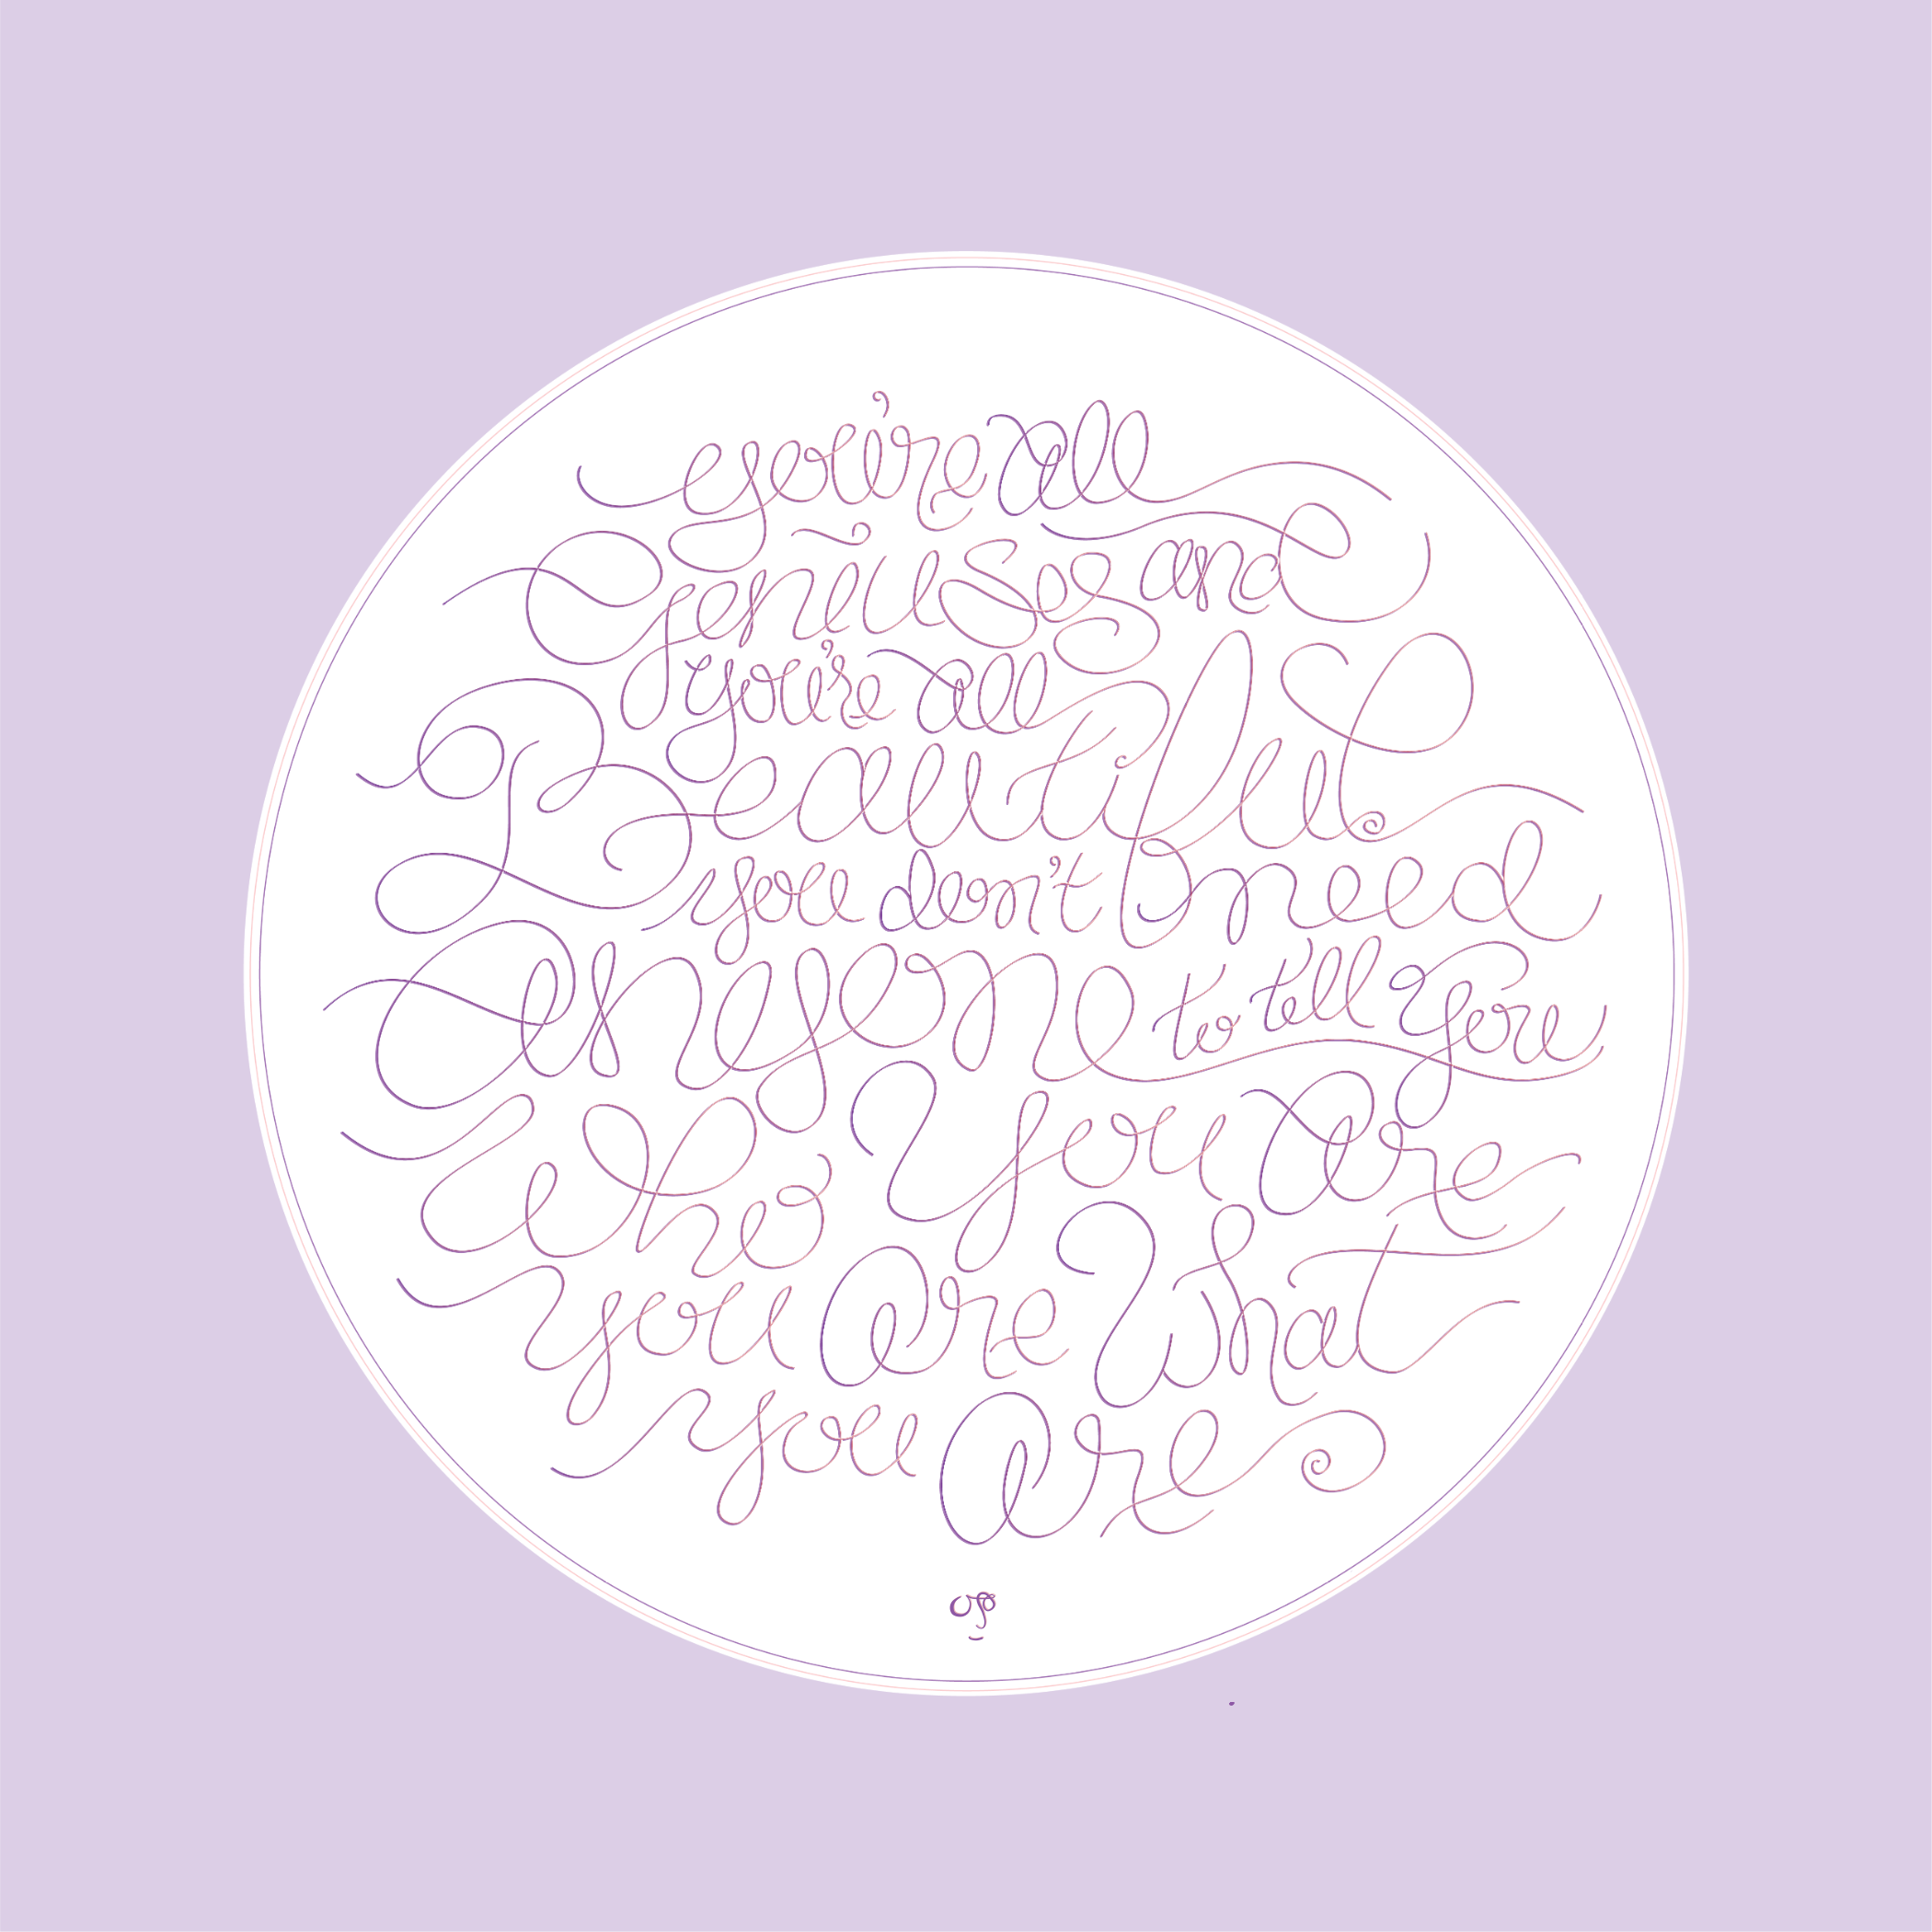 you're all
geniuses and
you're all
Beautiful.
you don't need
Anyone to tell you
who you are
you are what
you are